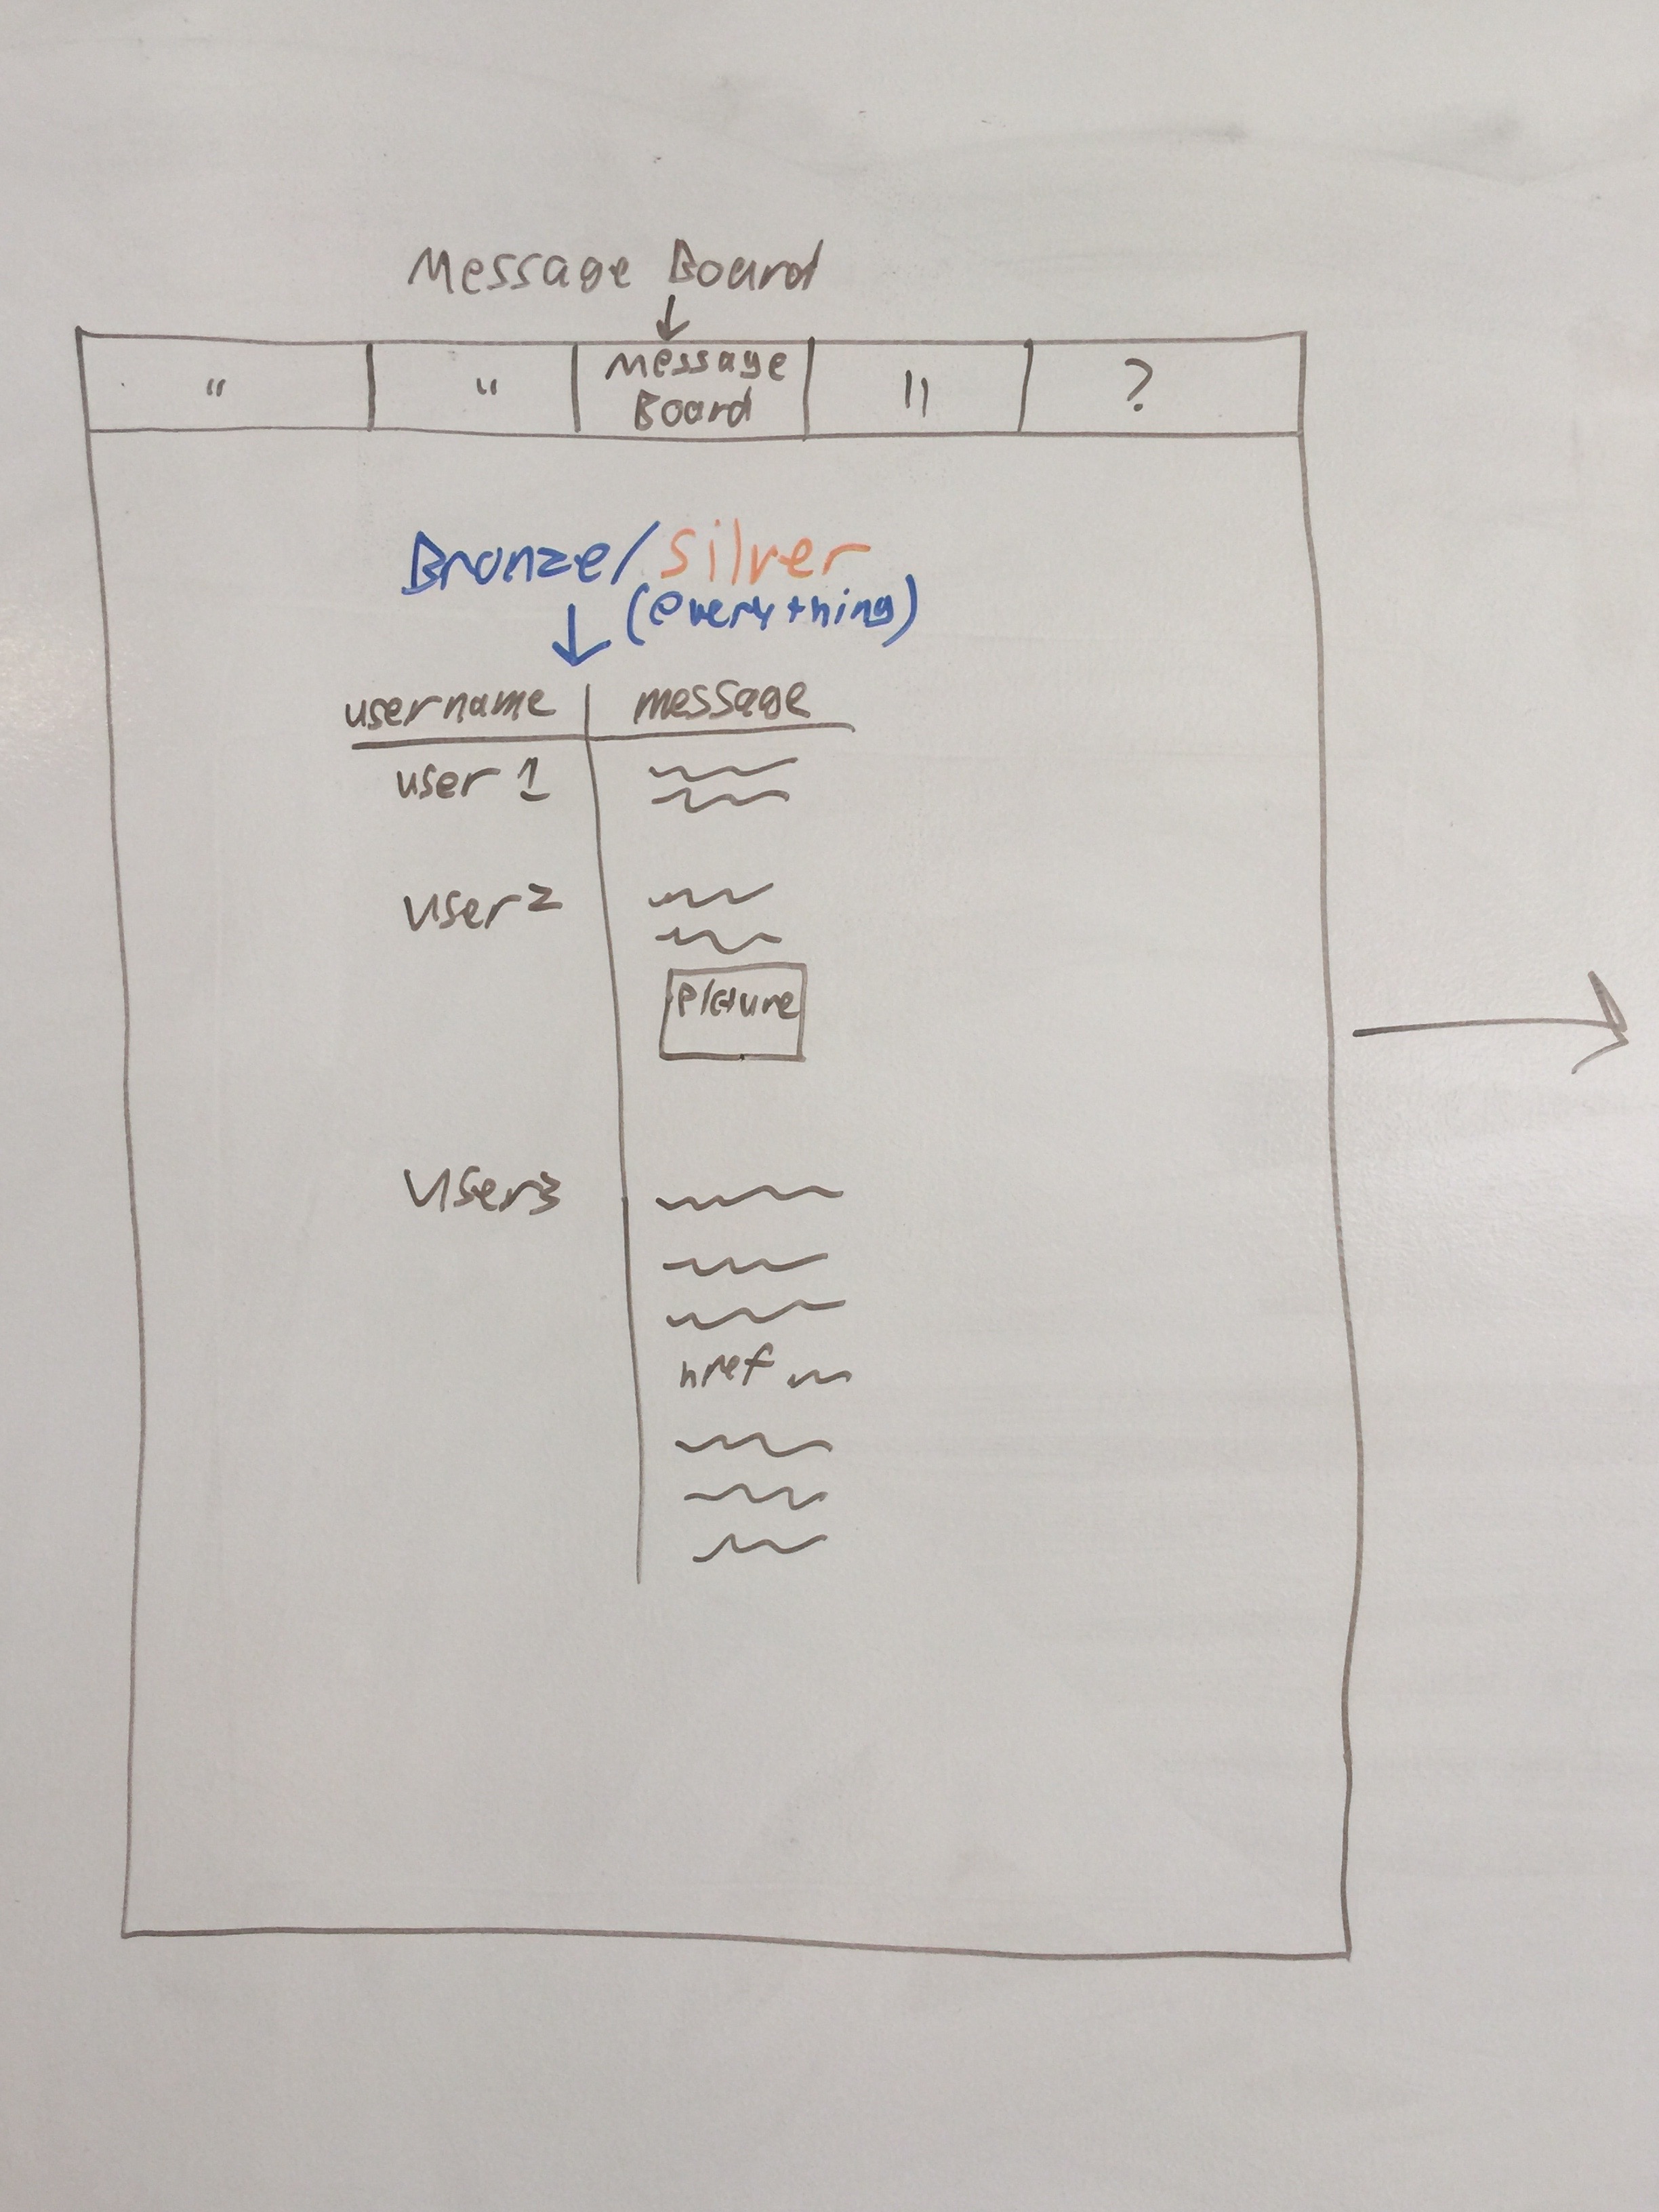 Message Board
" " Message Board " ?
Bronze/Silver
(everything)
username message
user 1
user 2
Picture
user3
href